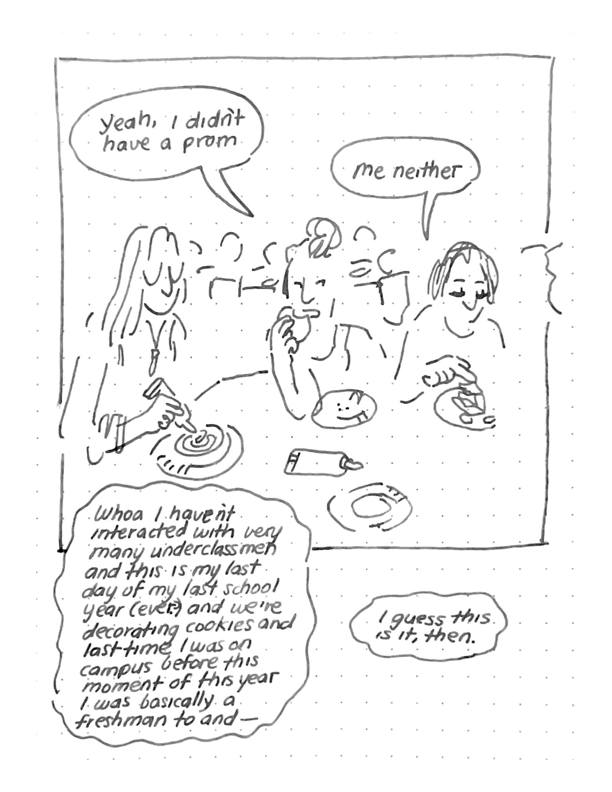 Yeah, I didn't
have a prom
me neither
Whoa I haven't
interacted with very
many underclassmen
and this is my last
day of my last school
year (ever?) and we're
decorating cookies and
last time I was on
campus before this
moment of this year
I was basically a
freshman to and —
I guess this
is it, then.